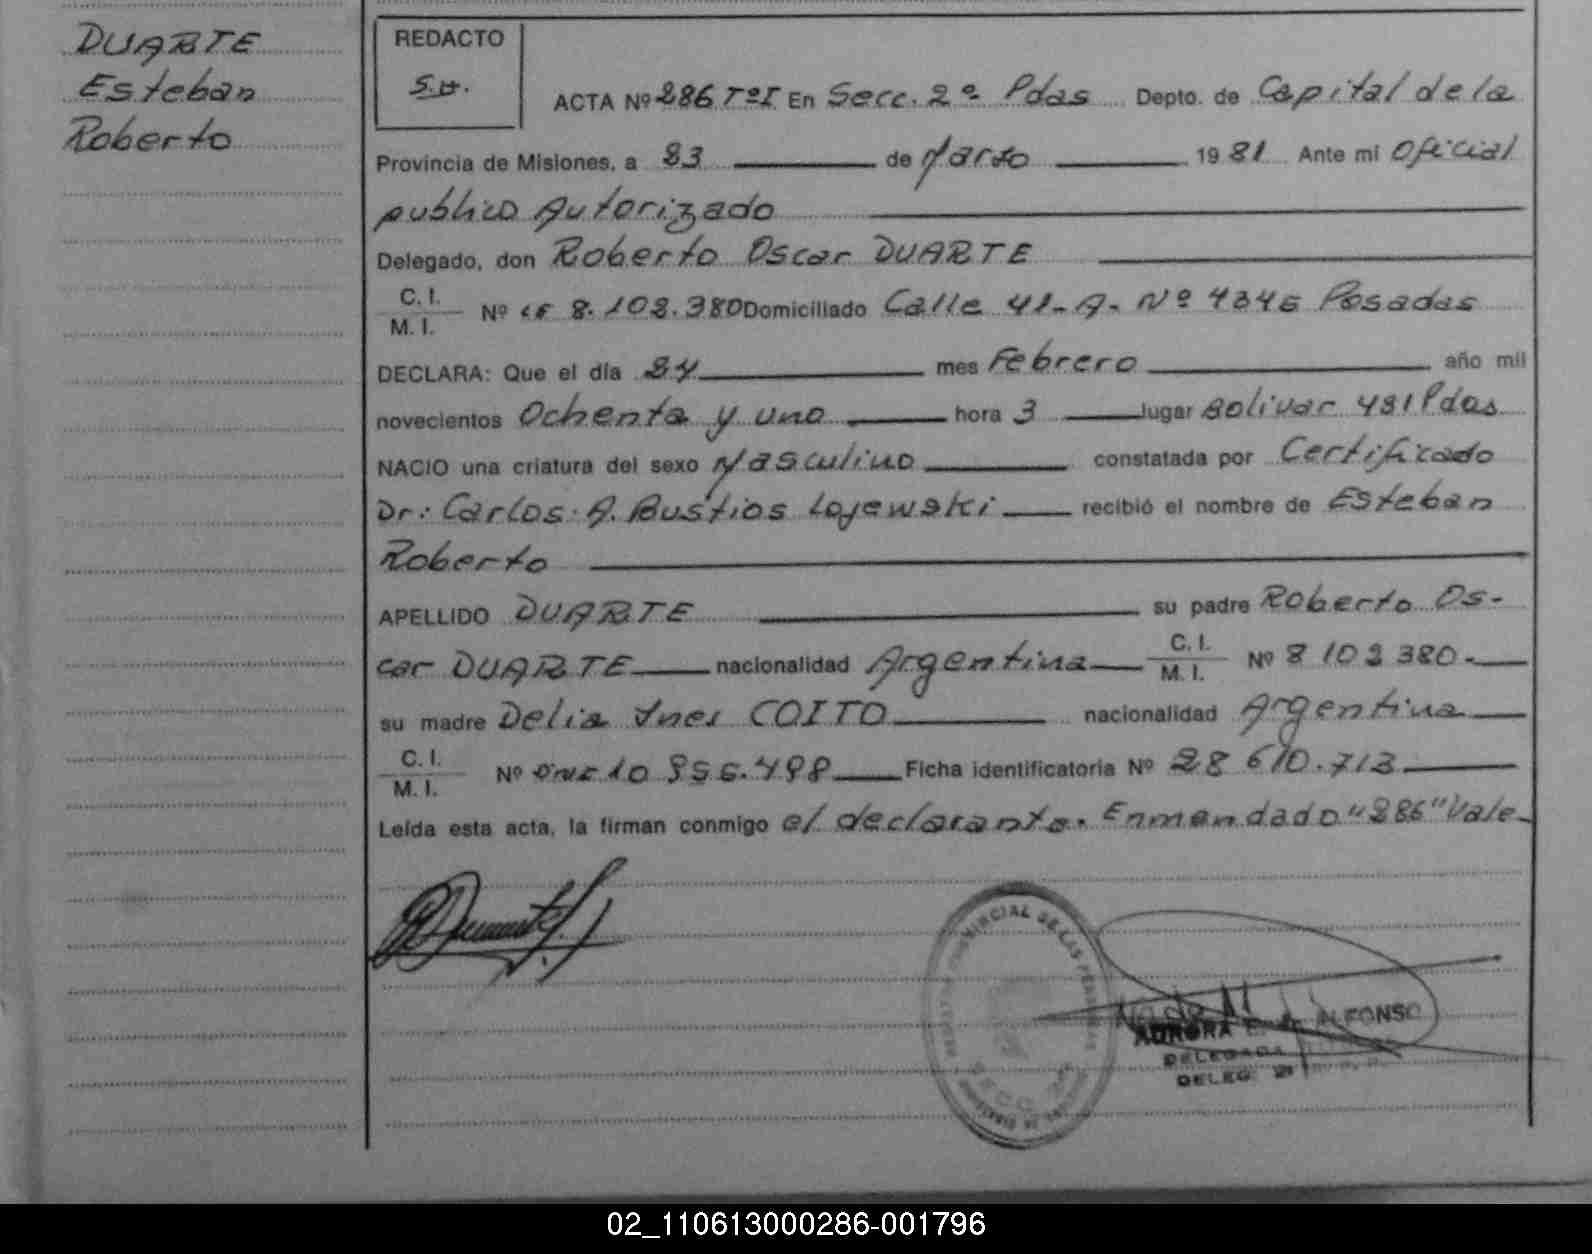 DUARTE
Esteban
Roberto
REDACTO
S.H.
ACTA Nº 286 TºI En Secc. 2ª Pdas Depto. de Capital de la
Provincia de Misiones, a 23 de Marzo 1981 Ante mi Oficial
publico Autorizado
Delegado, don Roberto Oscar DUARTE
C. I.
M. I. Nº LE 8.102.380 Domiciliado Calle 41-A- Nº 4345 Posadas
DECLARA: Que el día 24 mes Febrero año mil
novecientos Ochenta y uno hora 3 lugar Bolivar 481 Pdas
NACIO una criatura del sexo Masculino constatada por Certificado
Dr: Carlos. A. Bustios Lojewski recibió el nombre de Esteban
Roberto
APELLIDO DUARTE su padre Roberto Os-
car DUARTE nacionalidad Argentina C. I. M. I. Nº 8 102 380.-
su madre Delia Ines COITO nacionalidad Argentina
C. I.
M. I. Nº DNI 10 Ficha identificatoria Nº 28 610.713
Leída esta acta, la firman conmigo el declarante. Enmendado "286" Vale-
PROVINCIAL DE LAS PERSONAS
AURORA E. ALFONSO
DELEGADA
DELEG. 2ª
02_110613000286-001796